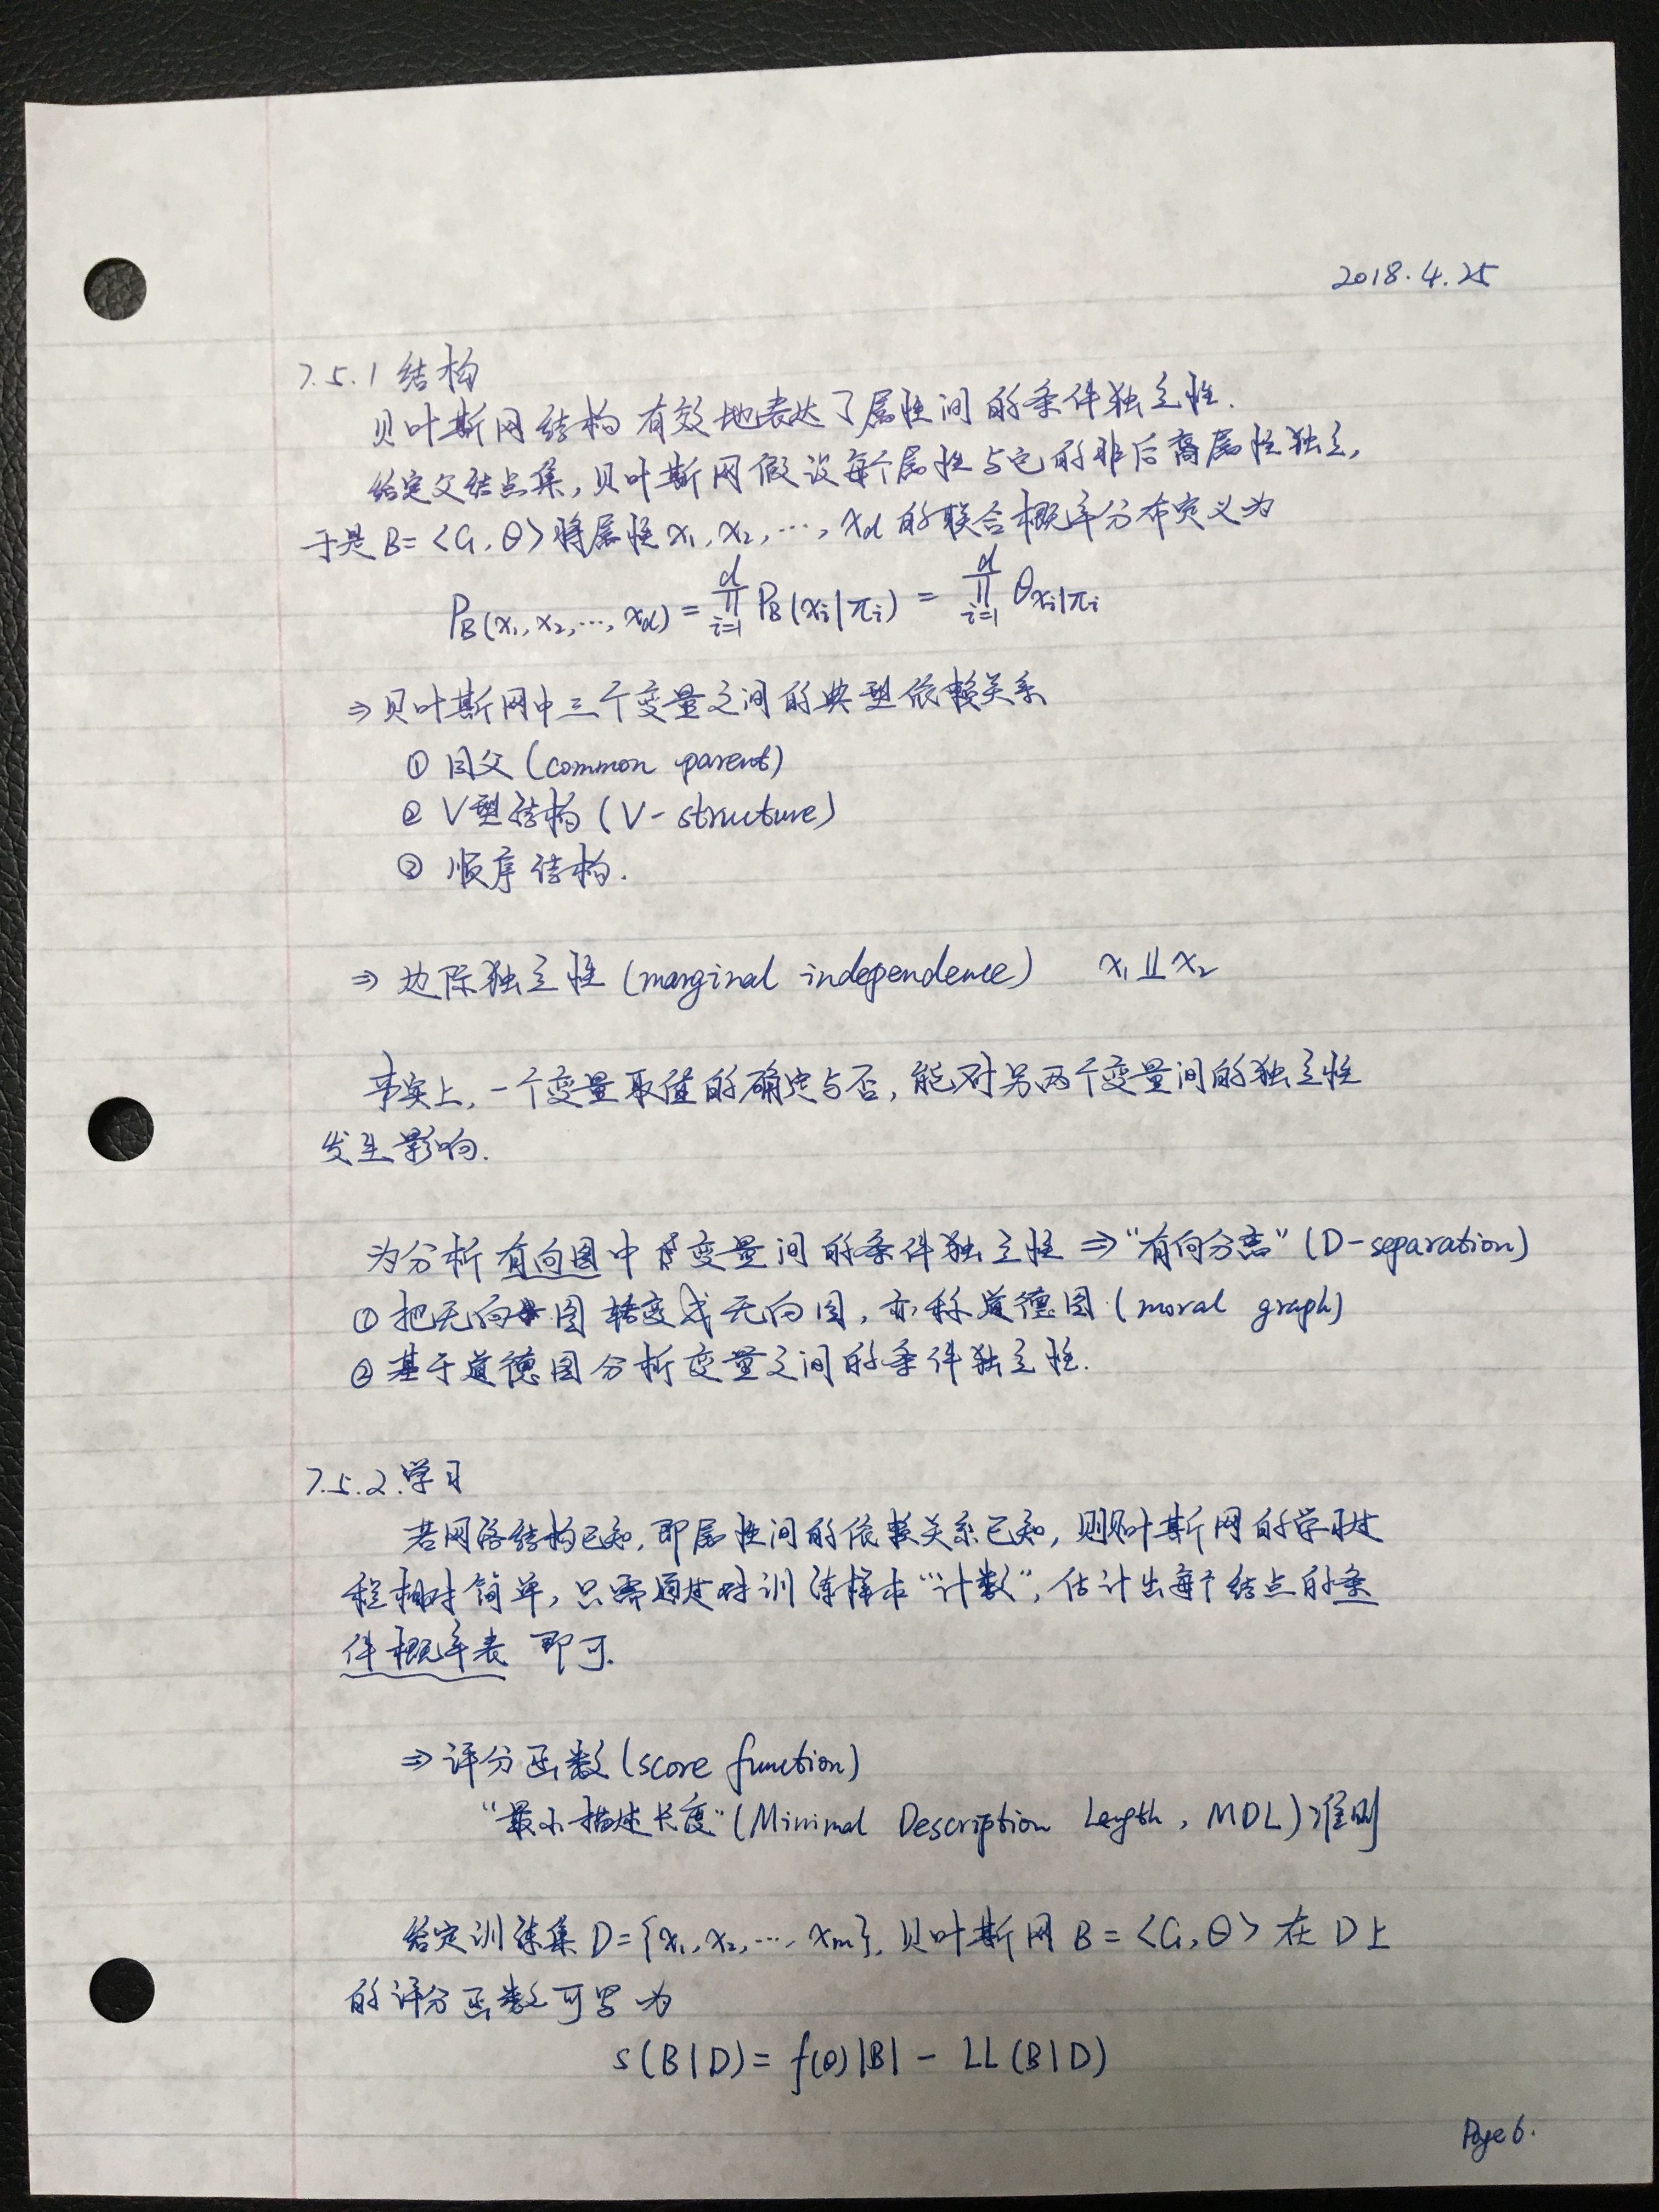 2018.4.25
7.5.1 结构
贝叶斯网结构有效地表达了属性间的条件独立性.
给定父结点集,贝叶斯网假设每个属性与它的非后裔属性独立,
于是B=<G,θ>将属性x₁,x₂,…,x_d的联合概率分布定义为
P_B(x₁,x₂,…,x_d) = ∏_{i=1}^{d} P_B(x_i|π_i) = ∏_{i=1}^{d} θ_{x_i|π_i}
⇒贝叶斯网中三个变量之间的典型依赖关系
① 同父(common parent)
② V型结构(V-structure)
③ 顺序结构.
⇒ 边际独立性(marginal independence) x₁⫫x₂
事实上,一个变量取值的确定与否,能对另两个变量间的独立性
发生影响.
为分析有向图中变量间的条件独立性⇒"有向分离"(D-separation)
①把无向图转变成无向图,亦称道德图(moral graph)
②基于道德图分析变量之间的条件独立性.
7.5.2.学习
若网络结构已知,即属性间的依赖关系已知,则贝叶斯网的学习过
程相对简单,只需通过对训练样本"计数",估计出每个结点的条
件概率表即可.
⇒评分函数(score function)
"最小描述长度"(Minimal Description Length, MDL)准则
给定训练集D={x₁,x₂,…,x_m},贝叶斯网B=<G,θ>在D上
的评分函数可写为
s(B|D)= f(θ)|B| - LL(B|D)
Page 6.